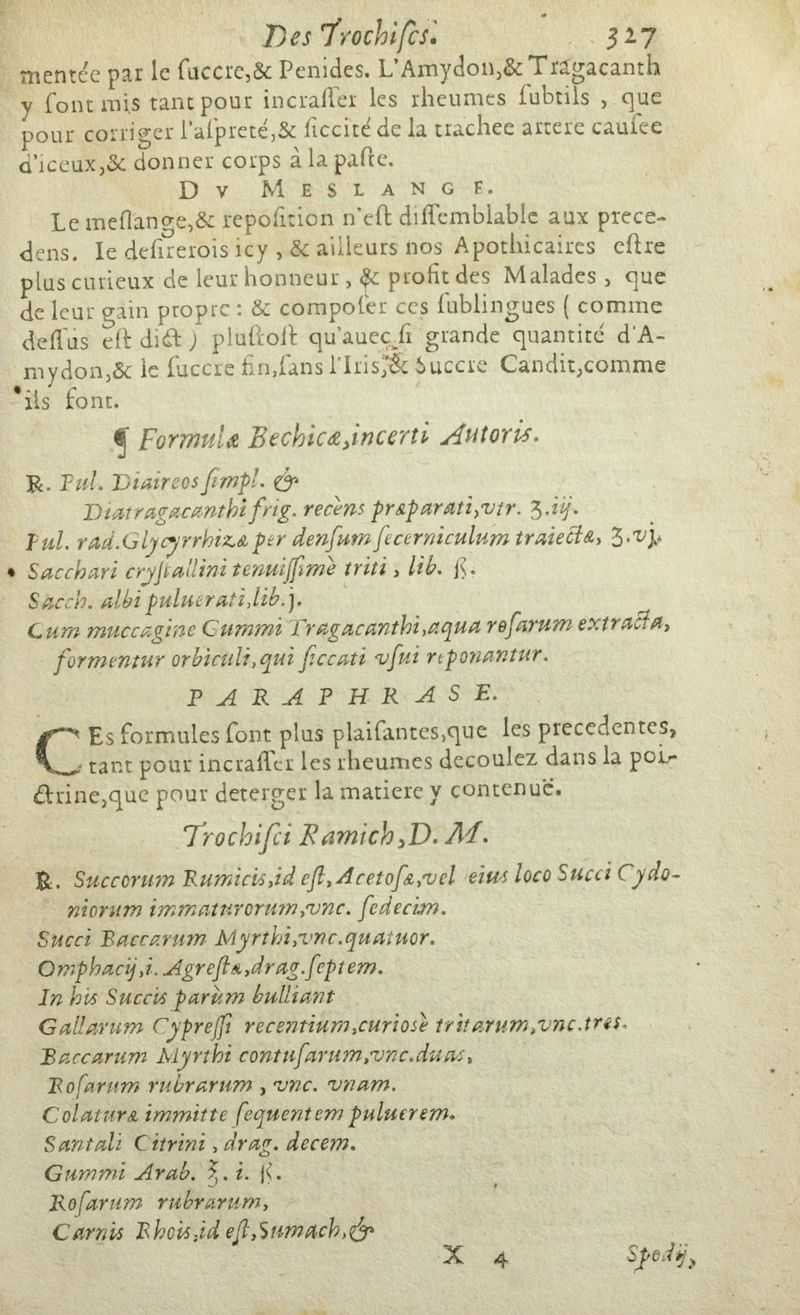 Des Trochiſcs. 327
mentée par le ſuccre,& Penides. L'Amydon,& Tragacanth
y ſont mis tant pour incraſſer les rheumes ſubtils , que
pour corriger l'aſpreté,& ſiccité de la trachee artere cauſee
d'iceux,& donner corps à la paſte.
D V MESLANGE.
Le meſlange,& repoſition n'eſt diſſemblable aux prece-
dens. Ie deſirerois icy , & ailleurs nos Apothicaires eſtre
plus curieux de leur honneur , & profit des Malades , que
de leur gain propre : & compoſer ces ſublingues ( comme
deſſus eſt dict ) pluſtoſt qu'auec ſi grande quantité d'A-
mydon,& le ſuccre fin,ſans l'Iris,& Succre Candit,comme
ils font.
¶ Formulæ Bechicæ,incerti Autoris.
℞. Pul. Diaireos ſimpl. &
Diatragacanthi frig. recèns præparati,vtr. ʒ.iij.
Pul. rad.Glycyrrhizæ per denſum ſecerniculum traiectæ, ʒ.vj.
Sacchari cryſtallini tenuiſſimè triti , lib. ß.
Sacch. albi puluerati,lib.j.
Cum muccagine Gummi Tragacanthi,aqua roſarum extracta,
formentur orbiculi,qui ſiccati vſui reponantur.
PARAPHRASE.
CEs formules ſont plus plaiſantes,que les precedentes,
tant pour incraſſer les rheumes decoulez dans la poi-
ctrine,que pour deterger la matiere y contenuë.
Trochiſci Ramich,D. M.
℞. Succorum Rumicis,id eſt,Acetoſæ,vel eius loco Succi Cydo-
niorum immaturorum,vnc. ſedecim.
Succi Baccarum Myrthi,vnc.quatuor.
Omphacij,i. Agreſtæ,drag.ſeptem.
In his Succis parùm bulliant
Gallarum Cypreſſi recentium,curiosè tritarum,vnc.tres.
Baccarum Myrthi contuſarum,vnc.duas,
Roſarum rubrarum , vnc. vnam.
Colaturæ immitte ſequentem puluerem.
Santali Citrini , drag. decem.
Gummi Arab. ℥. i. ß.
Roſarum rubrarum,
Carnis Rhois,id eſt,Sumach,&
X 4 Spodij,